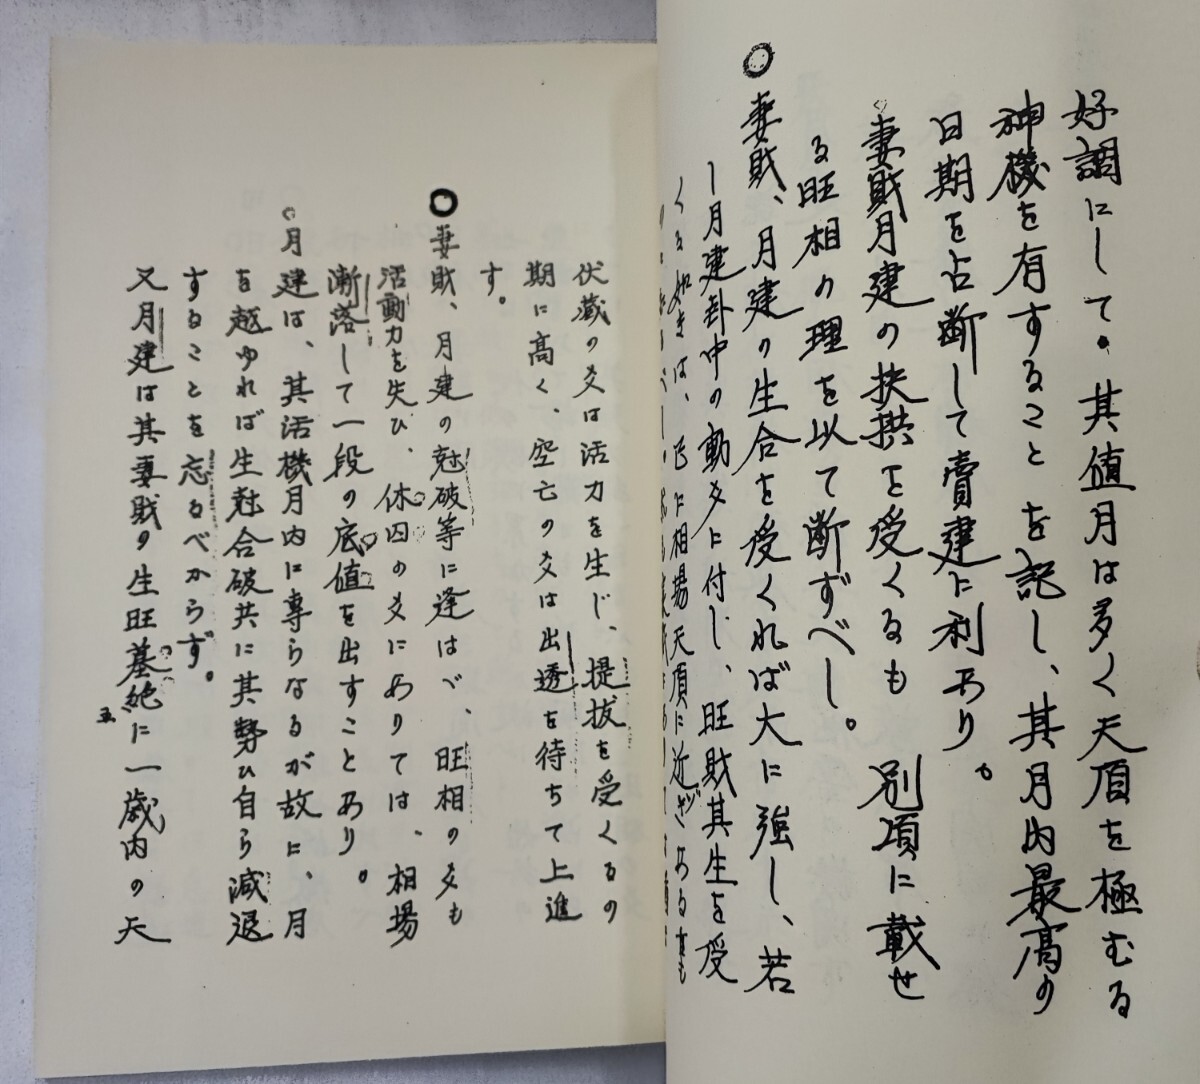 好調にして。其値月は多く天頂を極むる
神機を有することを記し、其月内最高の
日期を占断して賣建に利あり。
妻財月建の扶拱を受くるも別項に載せ
る旺相の理を以て断ずべし。
妻財、月建の生合を受くれば大に強し、若
し月建卦中の動爻に付し、旺財其生を受
くる如きは、已に相場天頂に近ぎある
伏蔵の爻は活力を生じ、提抜を受くるの
期に高く、空亡の爻は出透を待ちて上進
す。
妻財、月建の尅破等に逢はゞ、旺相の爻も
活動力を失ひ、休囚の爻にありては、相場
漸落して一段の底値を出すことあり。
月建は、其活機月内に専らなるが故に、月
を越ゆれば生尅合破共に其勢ひ自ら減退
することを忘るべからず。
又月建は其妻財の生旺墓絶に一歳内の天